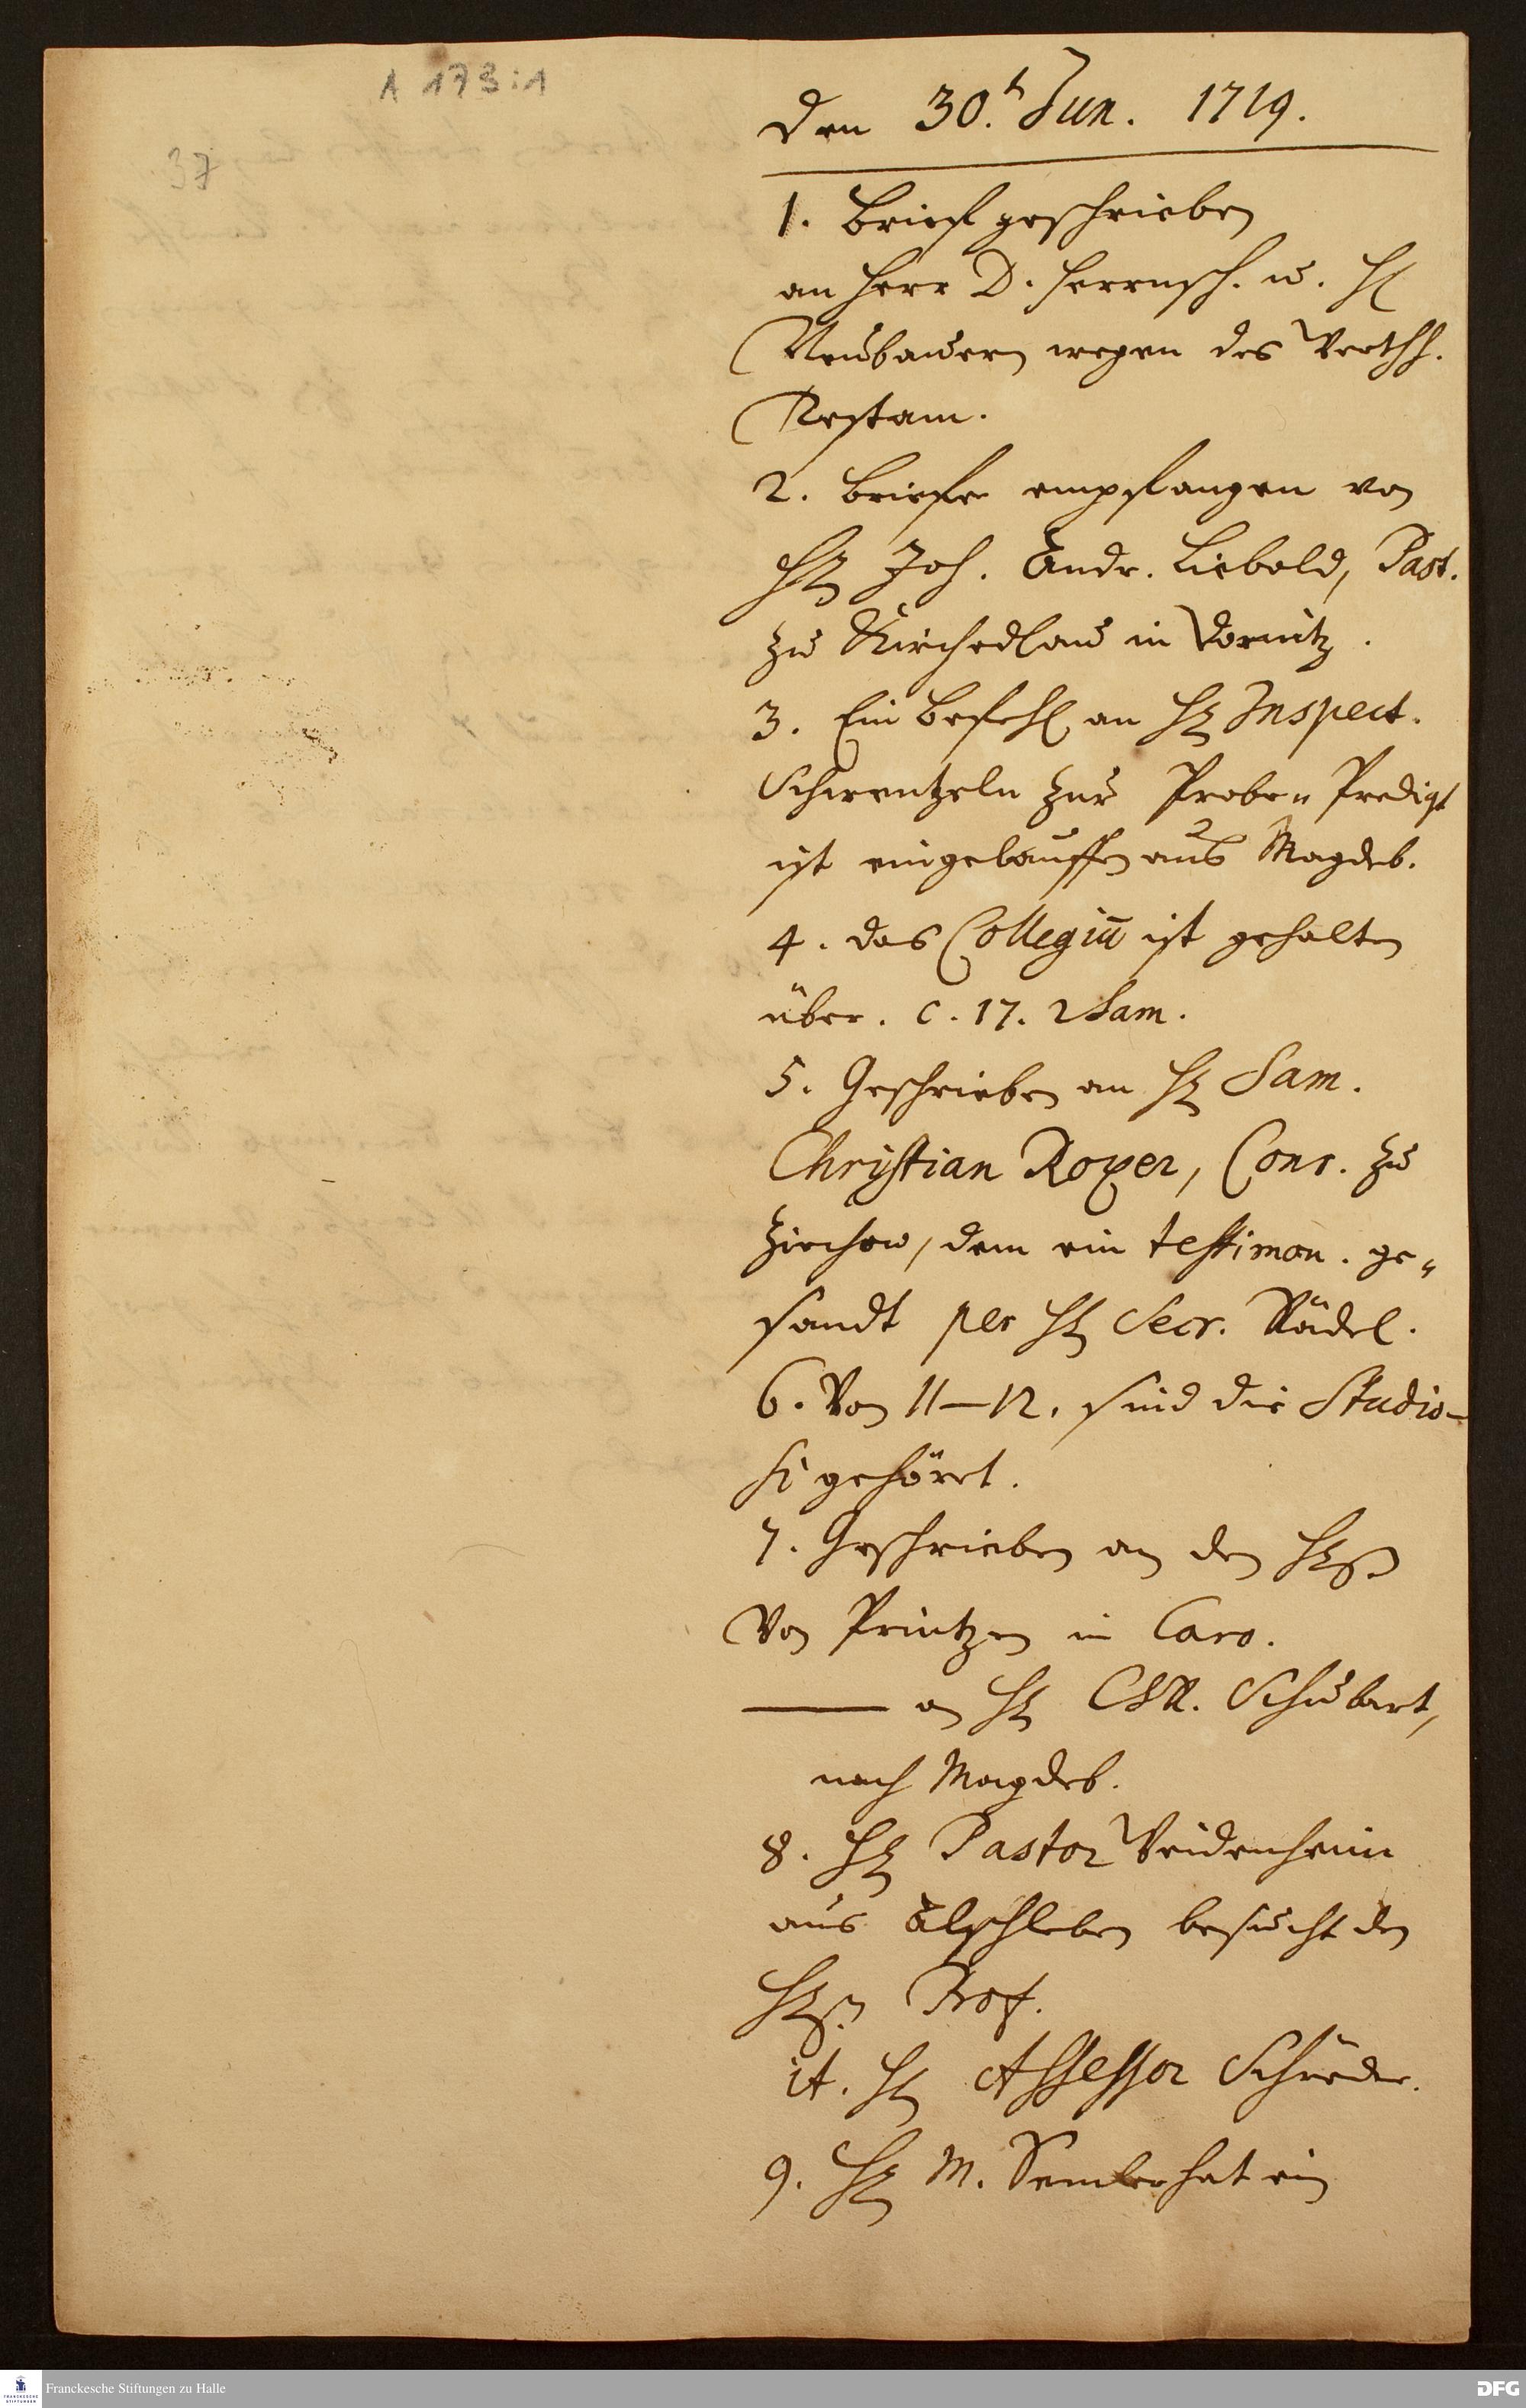 A 173:1
37
den 30.t Jun. 1719.
1. Brief geschrieben
an Herr D. Herrnsch. u. H
Neubauern wegen des
Testam.
2. Briefe empfangen von
H Joh. Andr. Liebold, Past.
zu Kirchedlau in Dornitz.
3. Ein Befehl an H Inspect.
Schwentzeln zur Probe-Predigt
ist eingelauffen aus Magdeb.
4. das Collegiū ist gehalten
über. c. 17. 2 Sam.
5. Geschrieben an H Sam.
Christian Royer, Conr. zu
Zirchow, dem ein testimon. ge-
sandt per H Secr. Rädel.
6. Von 11–12. sind die Studio-
si gehöret.
7. Geschrieben an den H
von Printzen in Caro.
——— an H CR. Schubart,
nach Magdeb.
8. H Pastor Veidenheim
aus Alschleben besucht den
H Prof.
it. H Assessor Schröder.
9. H M. Semler hat ein
Franckesche Stiftungen zu Halle
DFG